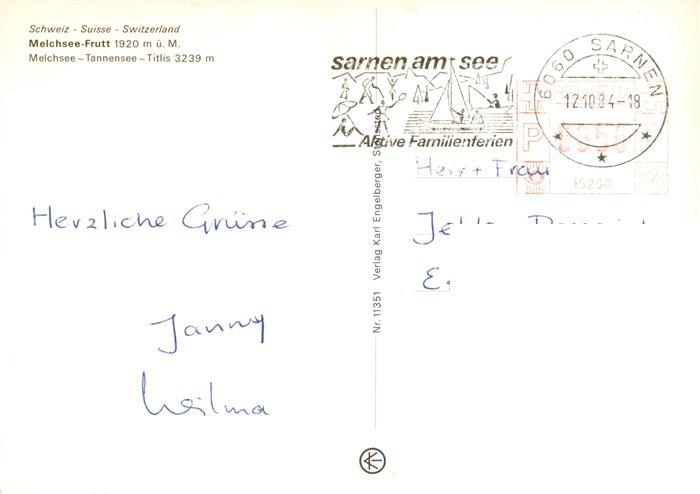 Schweiz - Suisse - Switzerland
Melchsee-Frutt 1920 m ü. M.
Melchsee – Tannensee – Titlis 3239 m
sarnen am see
Aktive Familienferien
6060 SARNEN
12.10.84-18
P
0050
19200
Herr + Frau
E.
Herzliche Grüsse
Janny
Wilma
Nr. 11351 Verlag Karl Engelberger,